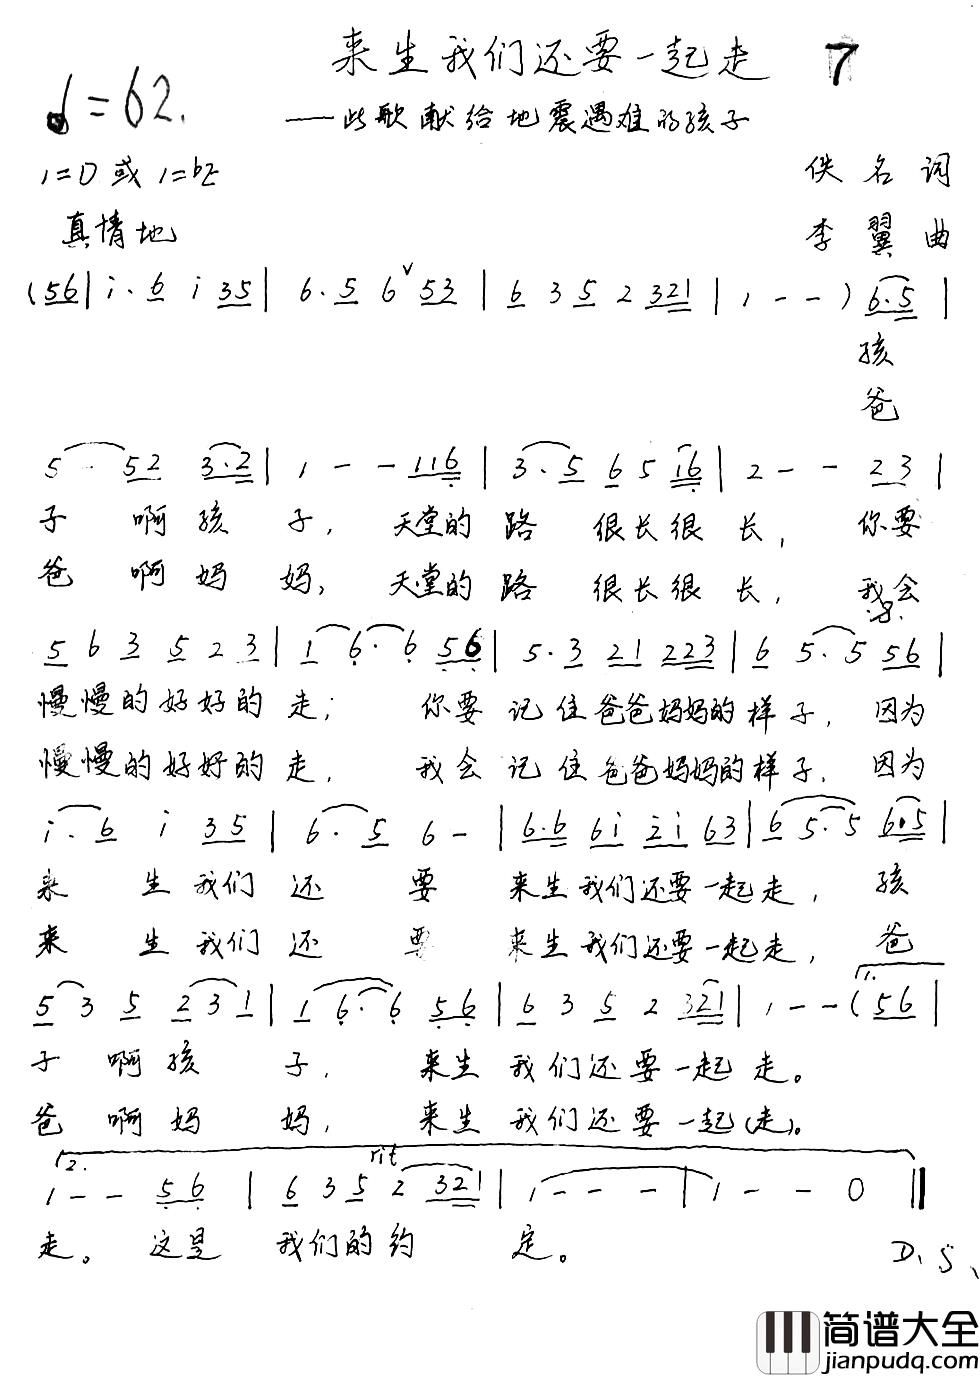 来生我们还要一起走 7
♩=62.
——此歌献给地震遇难的孩子
1=D或1=bE
佚名词
真情地
李翼曲
(56|i·6 i 35|6·5 6ˇ53|6 3 5 2 321|1--)6·5|
孩
爸
5·52 3·2|1--116|3·5 6 5 16|2--23|
子 啊孩 子, 天堂的路 很长很长, 你要
爸 啊妈 妈, 天堂的路 很长很长, 我会
5 6 3 5 2 3|1 6·6 56|5·3 21 223|6 5·5 56|
慢慢的好好的走; 你要记住爸爸妈妈的样子, 因为
慢慢的好好的走, 我会记住爸爸妈妈的样子, 因为
i·6 i 35|6·5 6-|6·6 6i 2i 63|6 5·5 6·5|
来 生我们还 要 来生我们还要一起走, 孩
来 生我们还 要 来生我们还要一起走, 爸
1.
5 3 5 2 3 1|1 6·6 56|6 3 5 2 321|1--(56|
子 啊孩 子, 来生我们还要一起走。
爸 啊妈 妈, 来生我们还要一起(走)。
2. rit
1--56|6 3 5 2 321|1---|1--0‖
走。 这是 我们的约 定。
D.S.
简谱大全
jianpudq.com